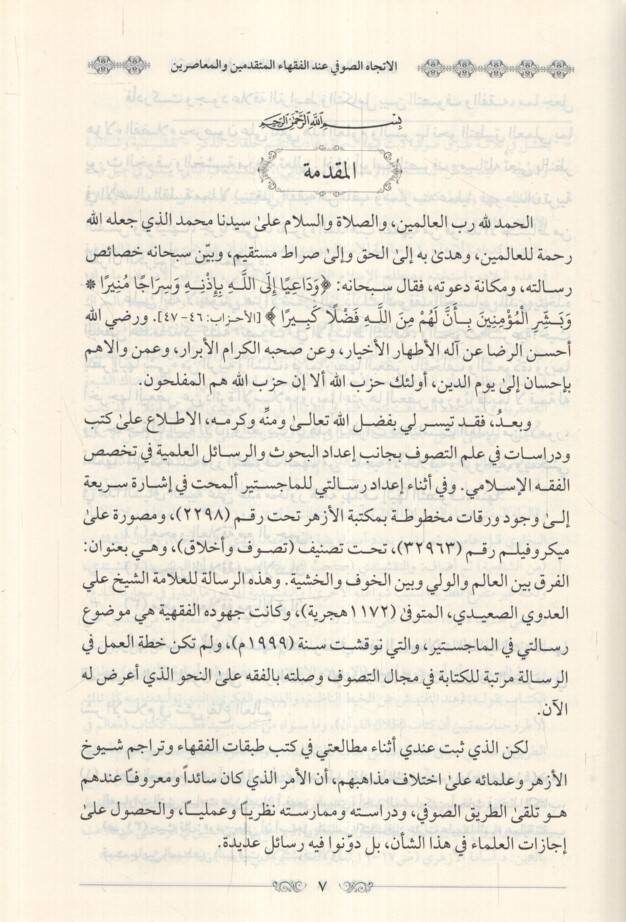 الاتجاه الصوفي عند الفقهاء المتقدمين والمعاصرين
بسم الله الرحمن الرحيم
المقدمة
الحمد لله رب العالمين، والصلاة والسلام علىٰ سيدنا محمد الذي جعله الله
رحمة للعالمين، وهدىٰ به إلىٰ الحق وإلىٰ صراط مستقيم، وبيّن سبحانه خصائص
رسالته، ومكانة دعوته، فقال سبحانه: ﴿وَدَاعِيًا إِلَى اللَّهِ بِإِذْنِهِ وَسِرَاجًا مُنِيرًا *
وَبَشِّرِ الْمُؤْمِنِينَ بِأَنَّ لَهُمْ مِنَ اللَّهِ فَضْلًا كَبِيرًا﴾ [الأحزاب: ٤٦-٤٧]. ورضي الله
أحسن الرضا عن آله الأطهار الأخيار، وعن صحبه الكرام الأبرار، وعمن والاهم
بإحسان إلىٰ يوم الدين، أولئك حزب الله ألا إن حزب الله هم المفلحون.
وبعدُ، فقد تيسر لي بفضل الله تعالىٰ ومنِّه وكرمه، الاطلاع علىٰ كتب
ودراسات في علم التصوف بجانب إعداد البحوث والرسائل العلمية في تخصص
الفقه الإسلامي. وفي أثناء إعداد رسالتي للماجستير ألمحت في إشارة سريعة
إلىٰ وجود ورقات مخطوطة بمكتبة الأزهر تحت رقم (٢٢٩٨)، ومصورة علىٰ
ميكروفيلم رقم (٣٢٩٦٣)، تحت تصنيف (تصوف وأخلاق)، وهي بعنوان:
الفرق بين العالم والولي وبين الخوف والخشية. وهذه الرسالة للعلامة الشيخ علي
العدوي الصعيدي، المتوفىٰ (١١٧٢هجرية)، وكانت جهوده الفقهية هي موضوع
رسالتي في الماجستير، والتي نوقشت سنة (١٩٩٩م)، ولم تكن خطة العمل في
الرسالة مرتبة للكتابة في مجال التصوف وصلته بالفقه علىٰ النحو الذي أعرض له
الآن.
لكن الذي ثبت عندي أثناء مطالعتي في كتب طبقات الفقهاء وتراجم شيوخ
الأزهر وعلمائه علىٰ اختلاف مذاهبهم، أن الأمر الذي كان سائداً ومعروفًا عندهم
هو تلقىٰ الطريق الصوفي، ودراسته وممارسته نظريًا وعمليًا، والحصول علىٰ
إجازات العلماء في هذا الشأن، بل دوّنوا فيه رسائل عديدة.
٧